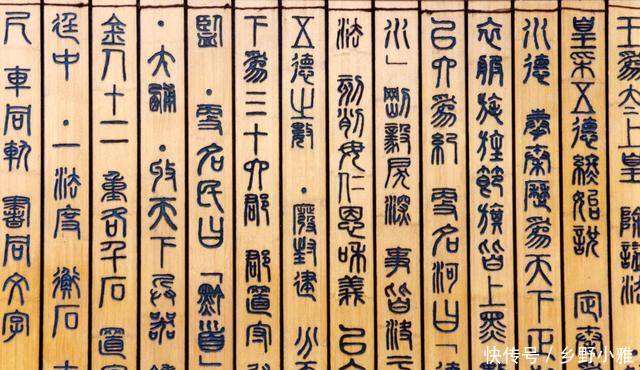 王爲太上皇 除諡法
皇采五德終始說 定秦
水德 奉秦曆爲天下正
衣服旄旌節旗皆上黑
以六爲紀 更名河曰「德
水」剛毅戾深 事皆決于
法 刻削毋仁恩和義 以合
五德之數 ·廢封建 分天
下爲三十六郡 郡置守
監 ·更名民曰「黔首」
·大酺 ·收天下兵器
金人十二 重各千石 置宮
廷中 ·一法度 衡石 丈
尺 車同軌 書同文字
快传号 / 乡野小雅